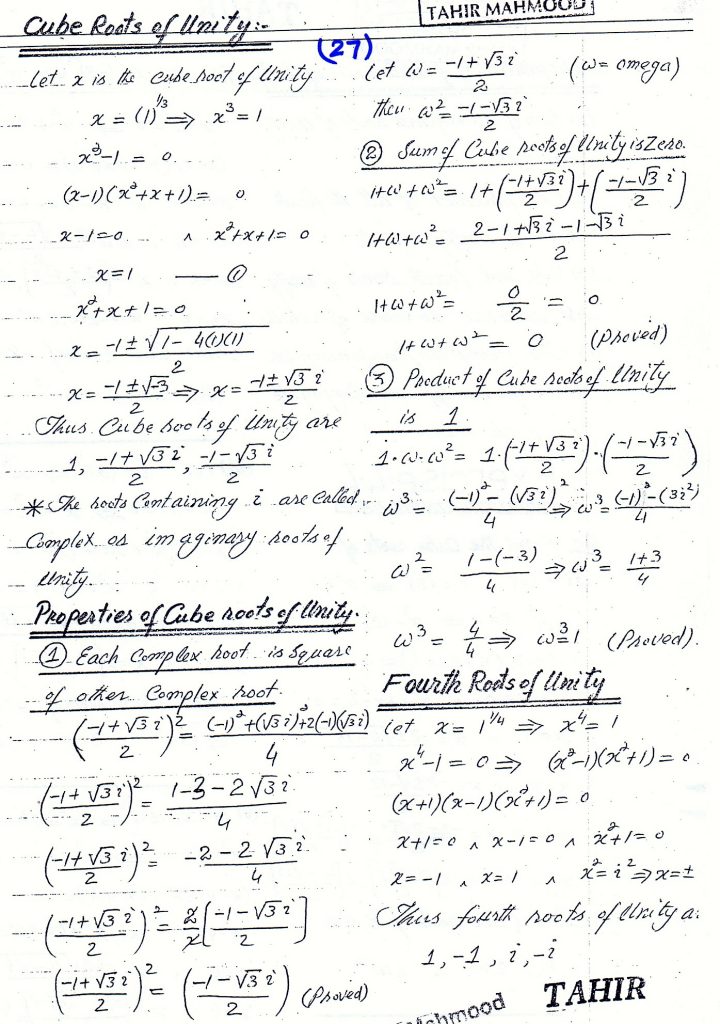 TAHIR MAHMOOD
(27)
Cube Roots of Unity:-
Let x is the cube root of Unity
x = (1)^1/3 ⇒ x³ = 1
x³-1 = 0
(x-1)(x²+x+1) = 0
x-1=0 ∧ x²+x+1=0
x=1 —— ①
x²+x+1=0
x = -1 ± √1-4(1)(1) / 2
x = -1±√-3 / 2 ⇒ x = -1±√3 i / 2
Thus Cube roots of Unity are
1, -1+√3 i / 2, -1-√3 i / 2
* The roots Containing i are called
Complex or imaginary roots of
Unity.
Properties of Cube roots of Unity.
① Each Complex root is Square
of other Complex root.
(-1+√3 i / 2)² = (-1)²+(√3 i)²+2(-1)(√3 i) / 4
(-1+√3 i / 2)² = 1-3-2√3 i / 4
(-1+√3 i / 2)² = -2-2√3 i / 4
(-1+√3 i / 2)² = 2/4 [-1-√3 i / 2]
(-1+√3 i / 2)² = (-1-√3 i / 2) (Proved)
Let ω = -1+√3 i / 2 (ω = omega)
then ω² = -1-√3 i / 2
② Sum of Cube roots of Unity is Zero.
1+ω+ω² = 1+(-1+√3 i / 2)+(-1-√3 i / 2)
1+ω+ω² = 2-1+√3 i-1-√3 i / 2
1+ω+ω² = 0/2 = 0
1+ω+ω² = 0 (Proved)
③ Product of Cube roots of Unity
is 1.
1·ω·ω² = 1·(-1+√3 i / 2)·(-1-√3 i / 2)
ω³ = (-1)²-(√3 i)² / 4 ⇒ ω³ = (-1)²-(3i²) / 4
ω² = 1-(-3) / 4 ⇒ ω³ = 1+3 / 4
ω³ = 4/4 ⇒ ω³=1 (Proved).
Fourth Roots of Unity
Let x = 1^1/4 ⇒ x⁴ = 1
x⁴-1 = 0 ⇒ (x²-1)(x²+1) = 0
(x+1)(x-1)(x²+1) = 0
x+1=0 ∧ x-1=0 ∧ x²+1=0
x=-1 ∧ x=1 ∧ x²=i² ⇒ x=±
Thus fourth roots of Unity a
1, -1, i, -i
TAHIR